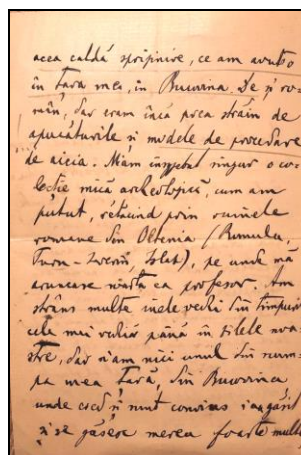 acea caldă sprijinire, ce am avut-o
în țara mea, în Bucovina. De și ro-
mân, dar eram încă prea străin de
apucăturile și modele de procedare
de aicia. M'am început singur o co-
lecție mică archeologică, cum am
putut, rătăcind prin ruinele
romane din Oltenia (Romula,
Turn-Severin, Islaz), pe unde mă
aruncase soarta ca profesor. Am
strâns multe inele vechi din timpurile
cele mai vechi până în zilele noa-
stre, dar n'am nici unul din
pa mea țară, din Bucovina
unde cred și sunt convins s'au găsit
și se găsesc mereu foarte multe